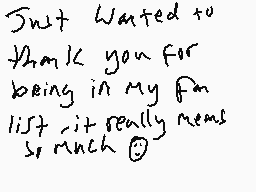 Just wanted to
thank you for
being in my fan
list, it really means
so much